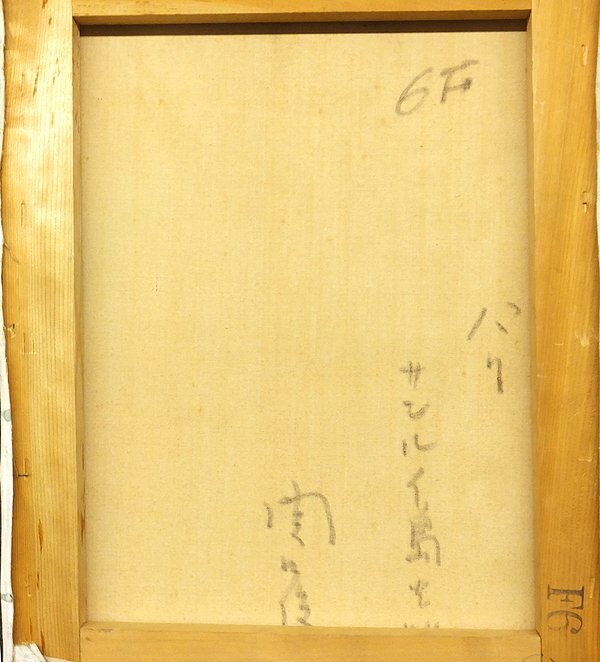 6F
パリ
サンルイ島
関
F6